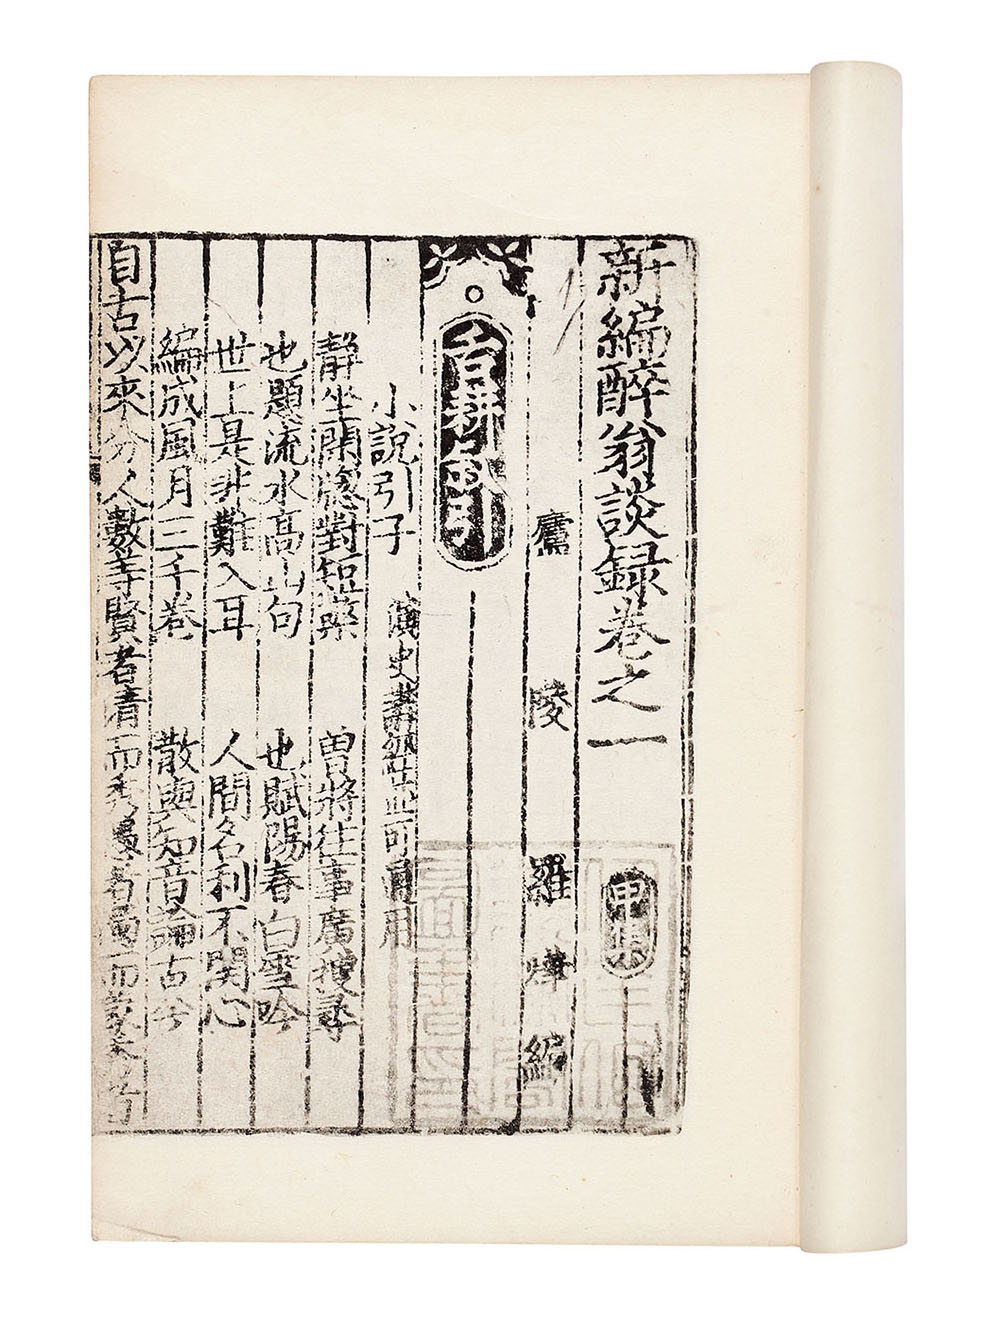 新編醉翁談録卷之一
甲集
廬陵羅燁編
舌耕叙引
小說引子 演史講經並可通用
靜坐閑窓對短檠 曽將往事廣搜尋
也題流水高山句 也賦陽春白雪吟
世上是非難入耳 人間名利不関心
編成風月三千卷 散與知音論古今
自古以來分人數等賢者清而秀愚者濁而